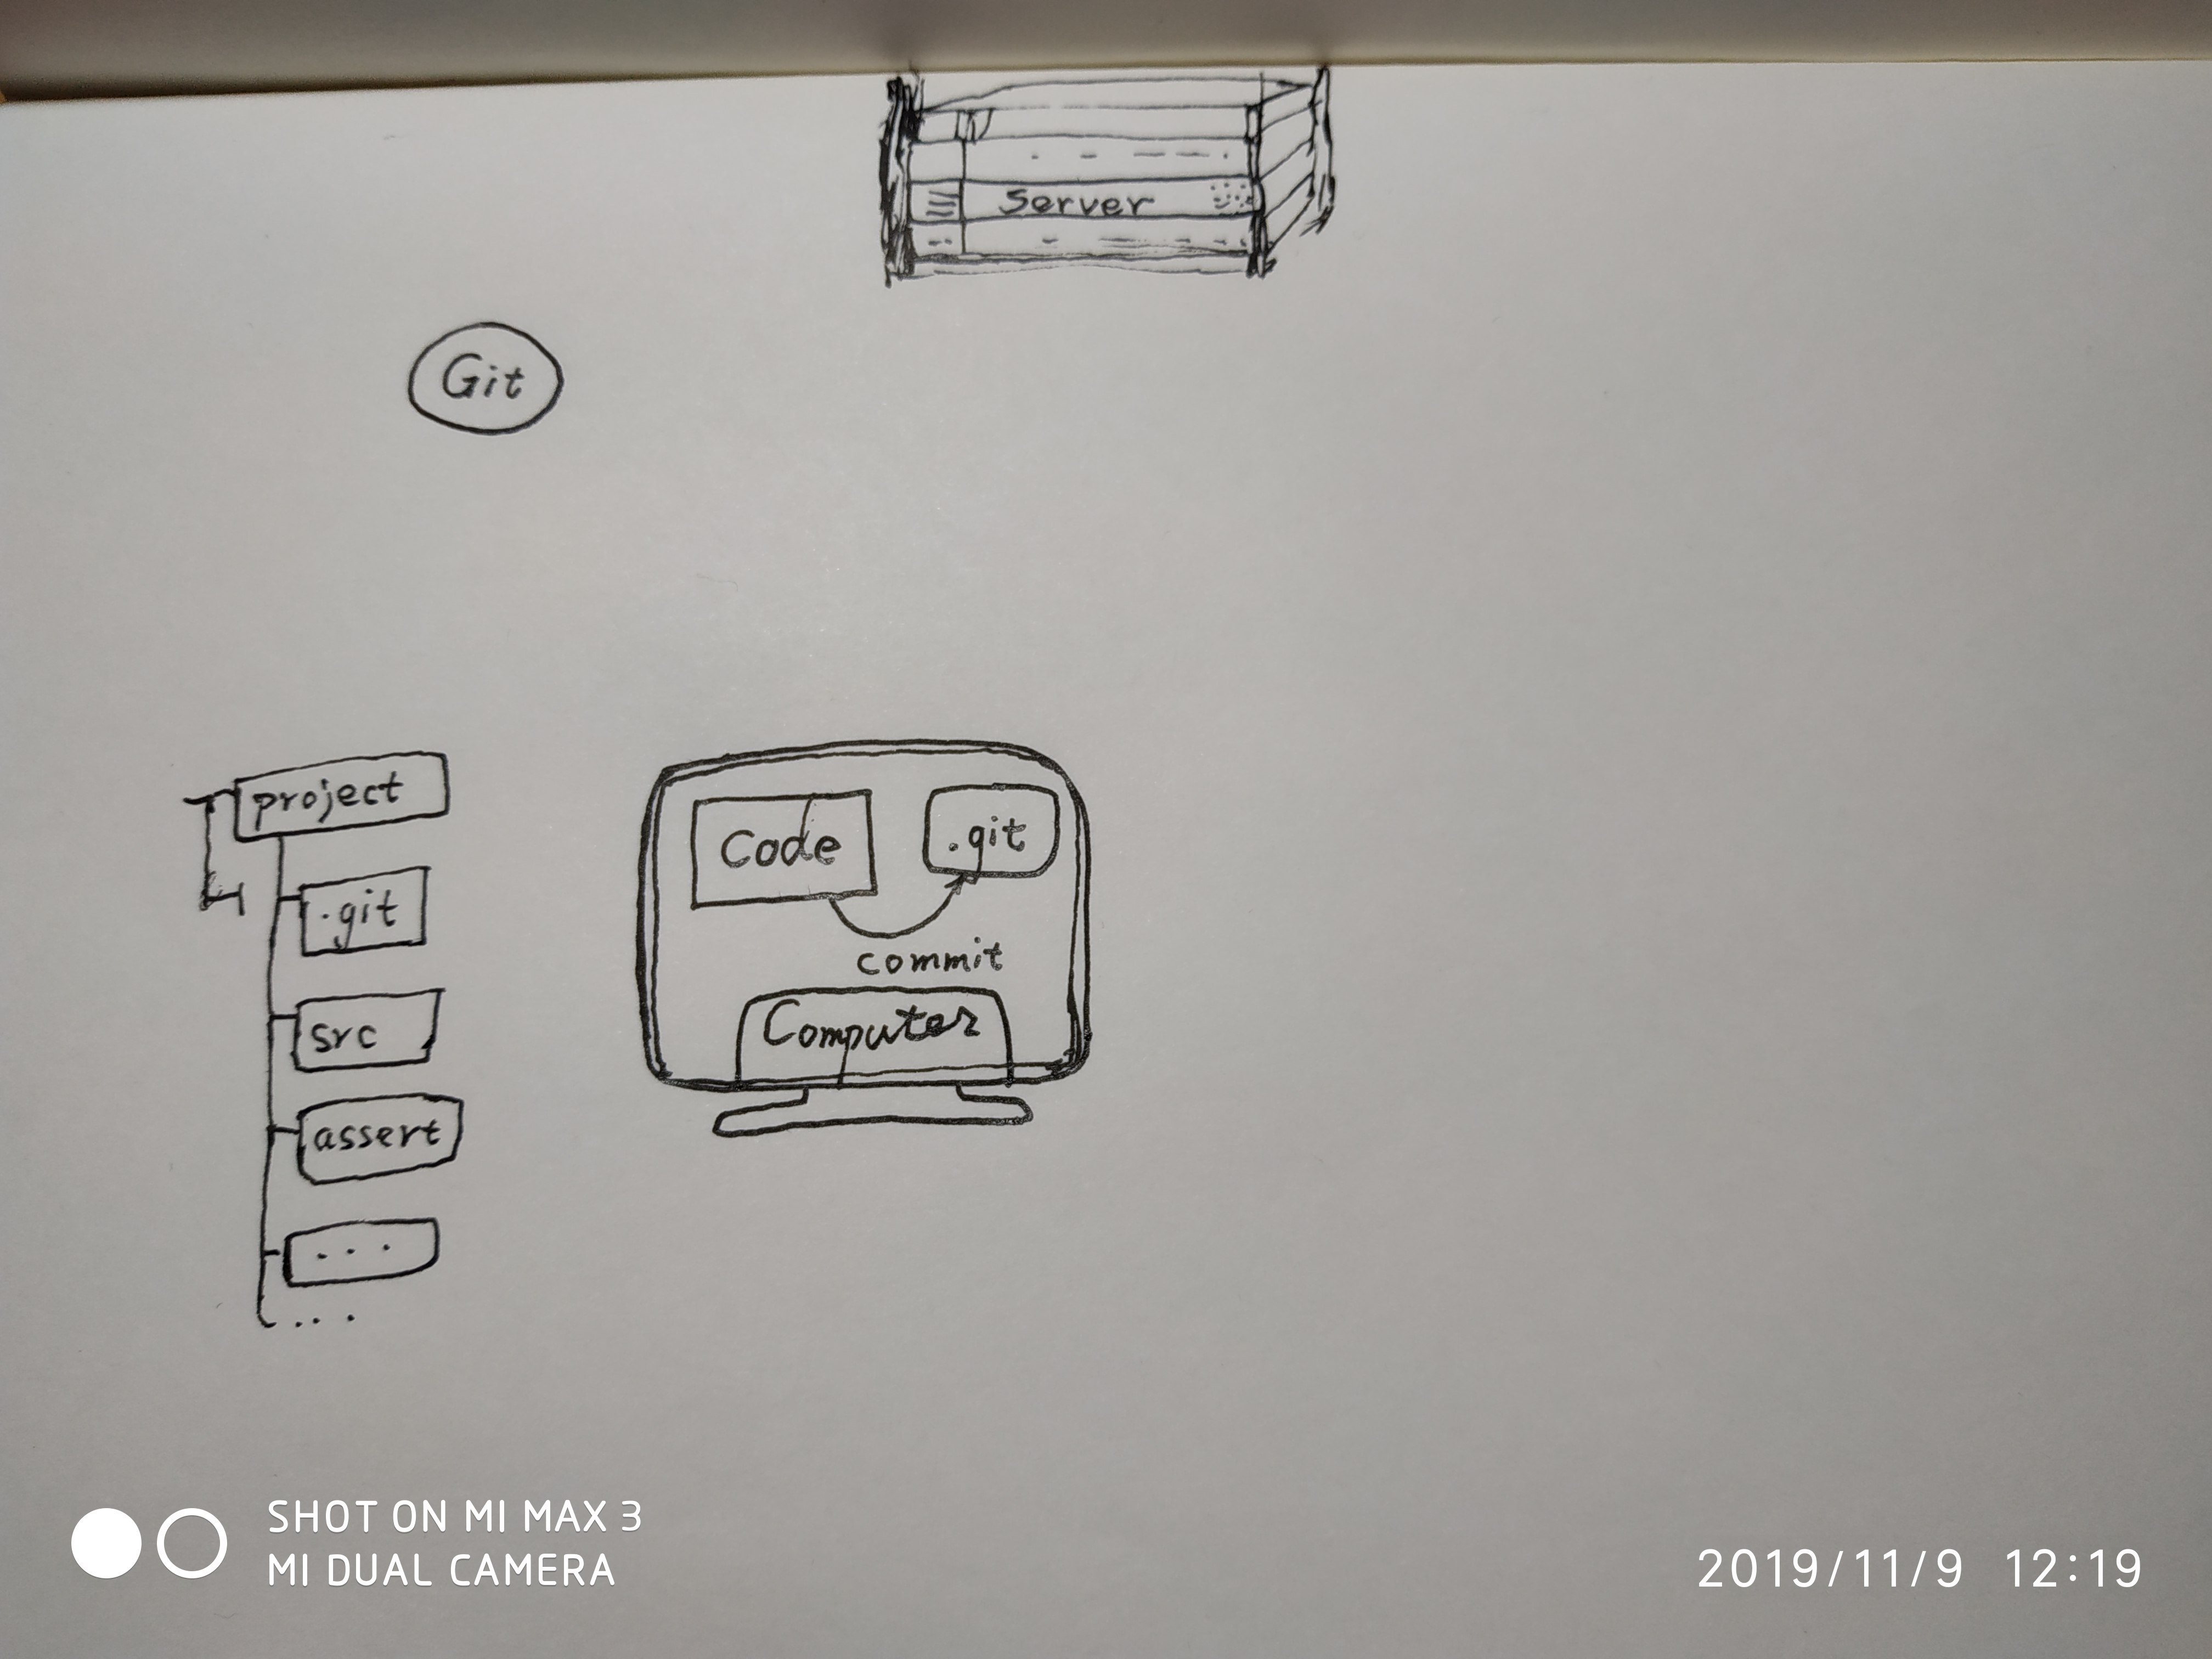 Server
Git
project
.git
src
assert
...
...
Code
.git
commit
Computer
SHOT ON MI MAX 3
MI DUAL CAMERA
2019/11/9 12:19